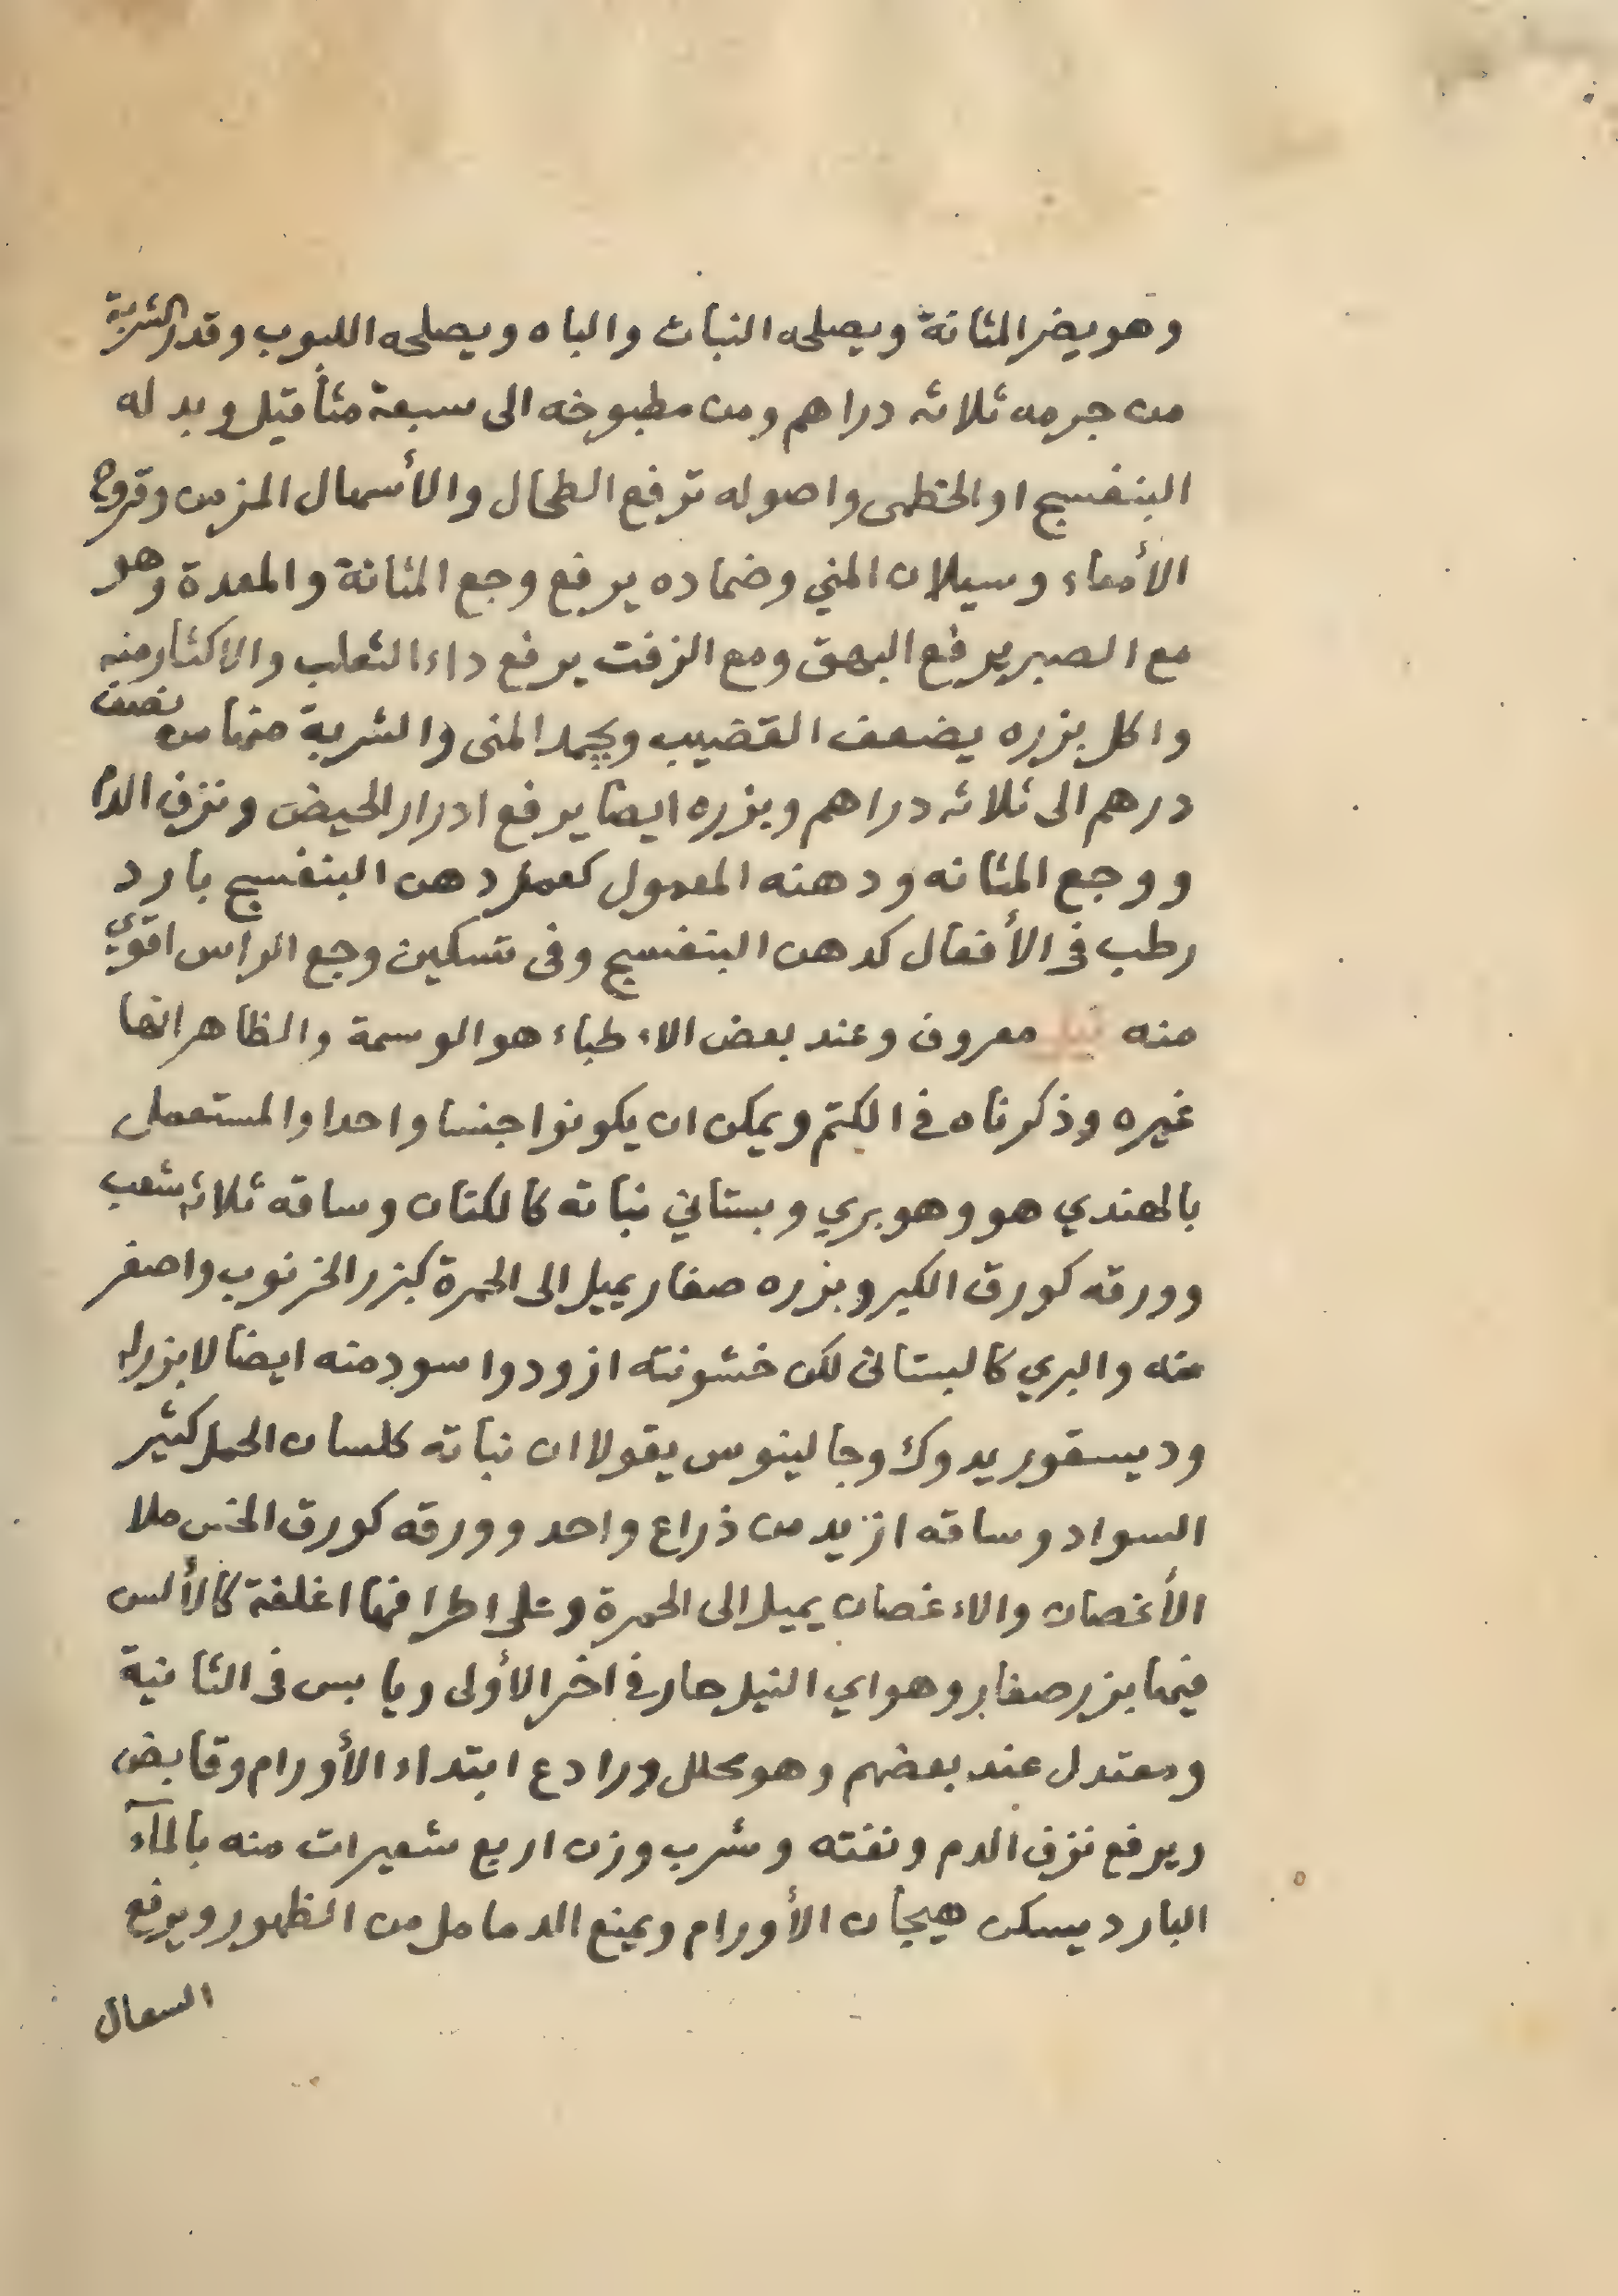 وهو يضر المثانة ويصلحه النبات والباه ويصلحه اللبوب وقدر الشربة
من جرمه ثلاثه دراهم ومن مطبوخه الى سبعة مثأقيل وبدله
البنفسج او الخطمى واصوله ترفع الطحال والأسهال المزمن وقروح
الأمعاء وسيلان المني وضماده يرفع وجع المثانة والمعدة وهو
مع الصبر يرفع البهق ومع الزفت يرفع داء الثعلب والاكثار منه
واكل بزره يضعف القضيب ويجمد المنى والشربة منها من نصف
درهم الى ثلاثه دراهم وبزره ايضا يرفع ادرار الحيض ونزف الدم
ووجع المثانه ودهنه المعمول كعمل دهن البنفسج بارد
رطب فى الأفعال كدهن البنفسج وفى تسكين وجع الراس اقوي
منه نيل معروف وعند بعض الاءطباء هو الوسمة والظاهر انها
غيره وذكرناه في الكتم ويمكن ان يكونوا جنسا واحدا والمستعمل
بالهندي هو وهو بري وبستاني نباته كالكتان وساقه ثلاثه شعب
وورقه كورق الكبر وبزره صغار يميل الى الحمرة كبزر الخرنوب واصغر
منه والبري كالبستانى لكن خشونته ازود واسود منه ايضا لا بزر له
وديسقوريدوك وجالينوس يقولا ان نباته كلسان الحمل كثير
السواد وساقه ازيد من ذراع واحد وورقه كورق الخس ملا
الأغصان والاءغصان يميل الى الحمرة وعلى اطرافها اغلفة كالألس
فيها بزر صغار وهو اي النيل حار في اخر الأولى ويابس فى الثانية
ومعتدل عند بعضهم وهو محلل ورادع ابتداء الأورام وقابض
ويرفع نزف الدم ونفته وشرب وزن اربع شعيرات منه بالمآء
البارد يسكن هيجان الأورام ويمنع الدمامل من الظهور ويرفع
السعال